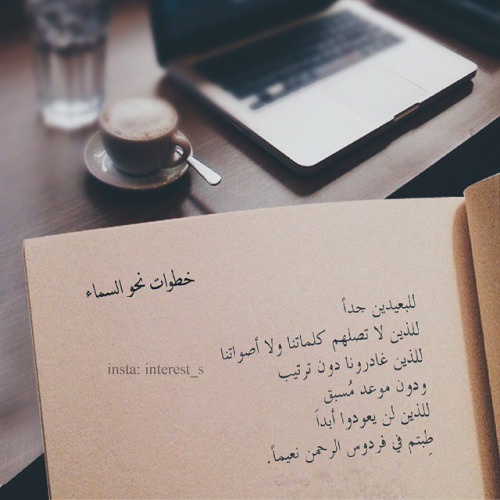 خطوات نحو السماء
للبعيدين جداً
للذين لا تصلهم كلماتنا ولا أصواتنا
للذين غادرونا دون ترتيب
ودون موعد مُسبق
للذين لن يعودوا أبداَ
طِبتم في فردوس الرحمن نعيماً.
insta: interest_s